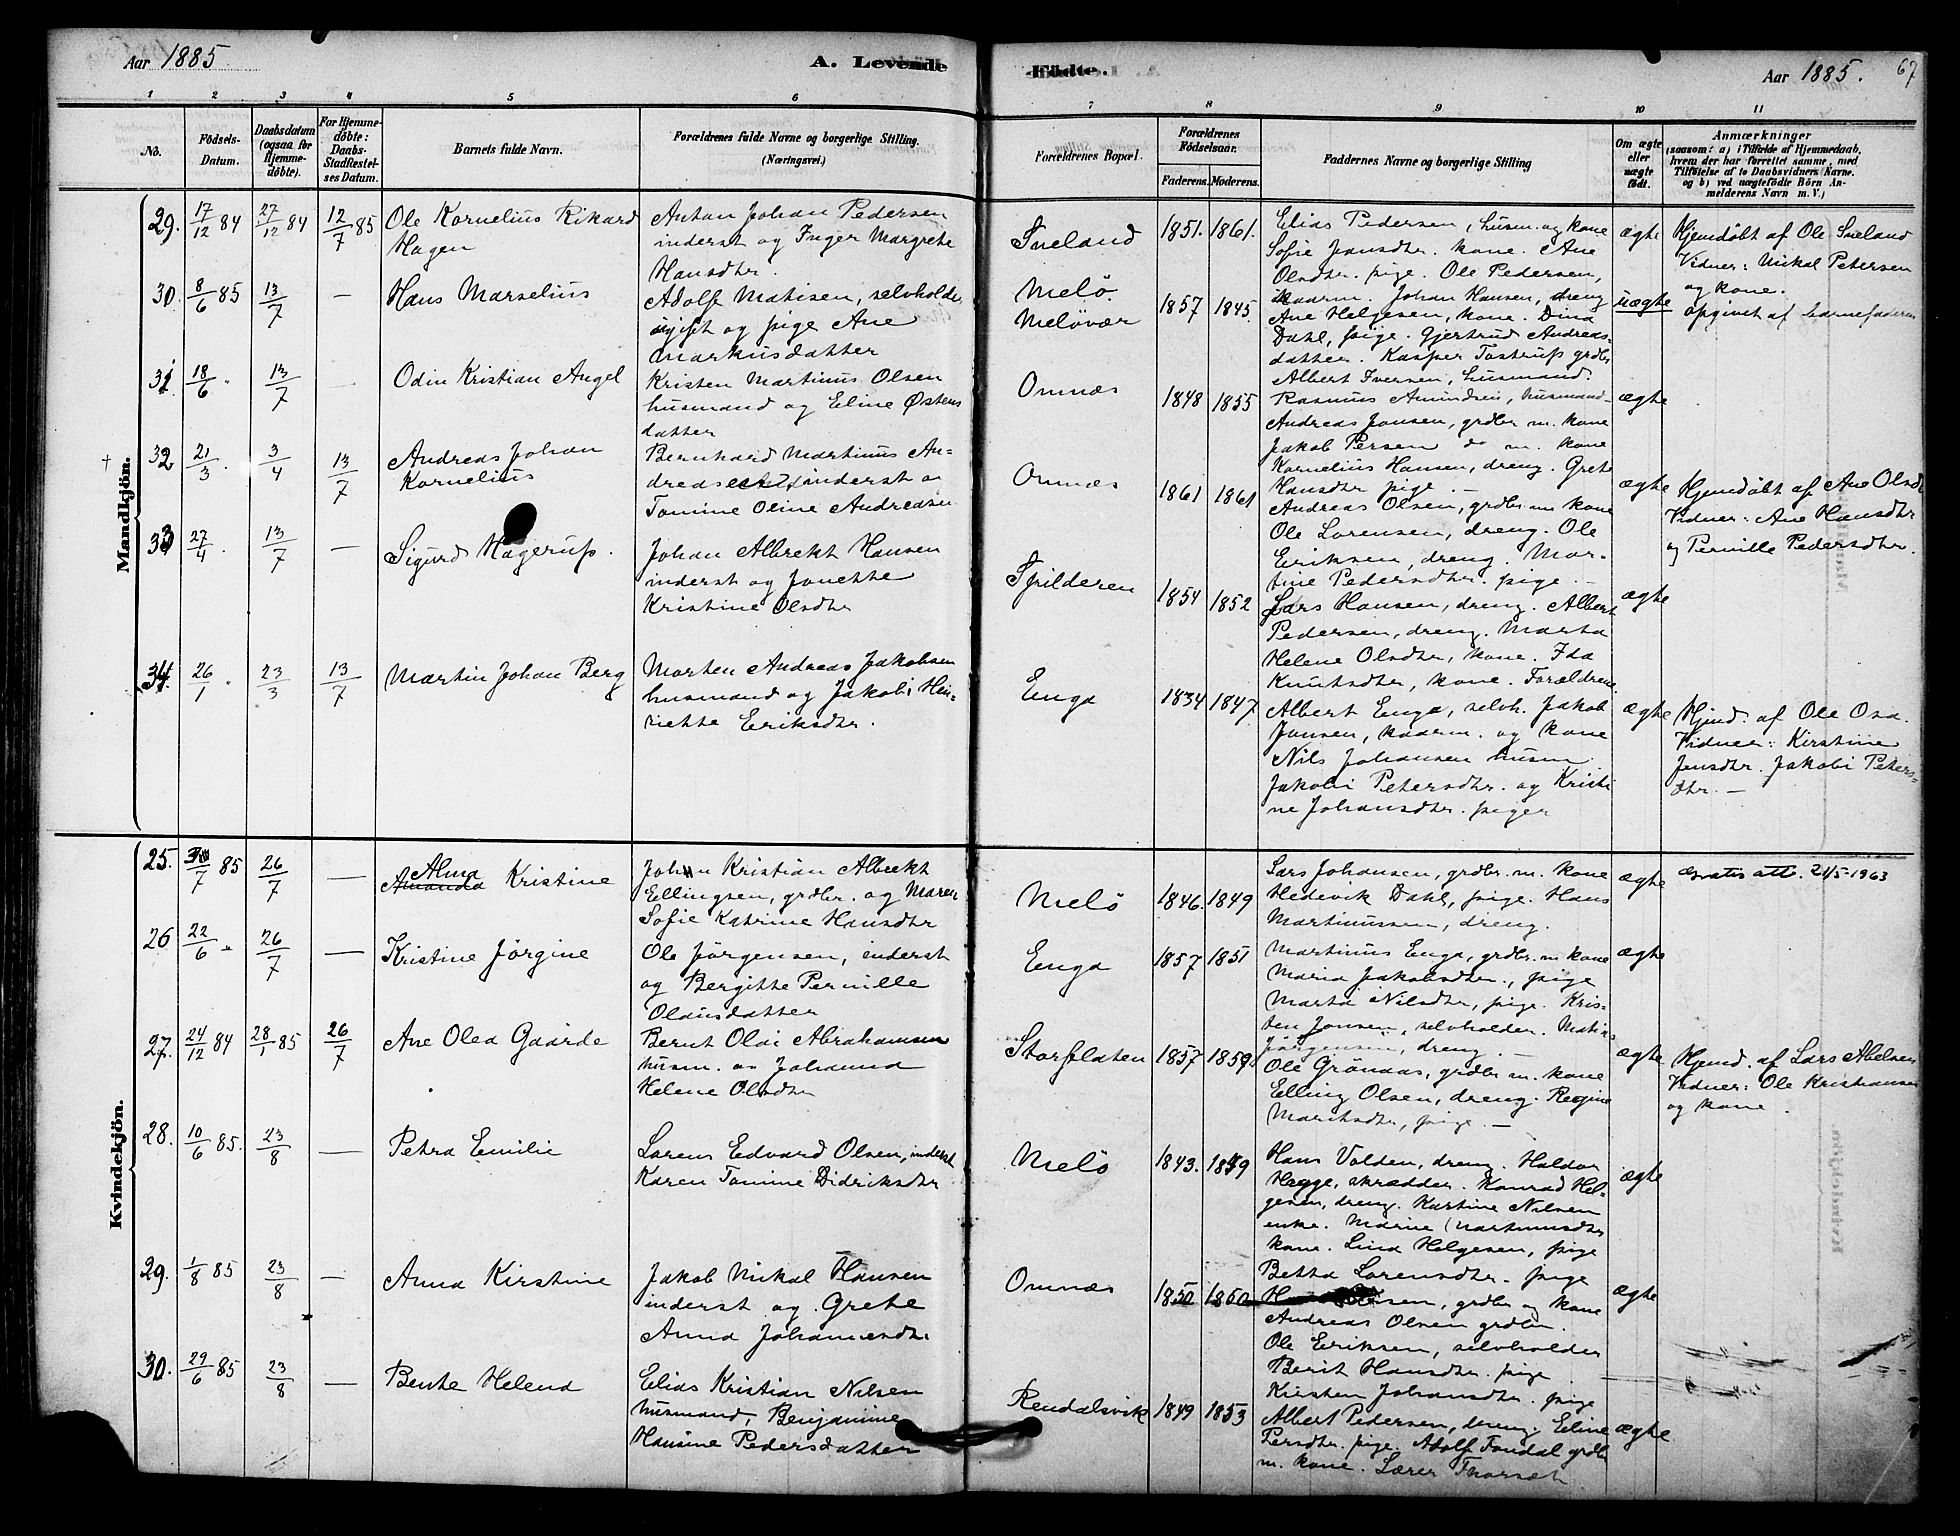 Aar 1885
A. Levende
Fødte.
Aar 1885.
67
1 2 3 4 5 6 7 8 9 10 11
No.
Fødsels-
Datum.
Daabsdatum
(ogsaa for
Hjemme-
døbte).
For Hjemme-
døbte:
Daabs-
Stadfæstel-
ses Datum.
Barnets fulde Navn.
Forældrenes fulde Navne og borgerlige Stilling.
(Næringsvei.)
Forældrenes Bopæl.
Forældrenes
Fødselsaar.
Faderens. Moderens.
Faddernes Navne og borgerlige Stilling
Om ægte
eller
uægte
født.
Anmærkninger
(saasom: a) i Tilfælde af Hjemmedaab,
hvem der har forrettet samme, med
Tilføielse af to Daabsvidners Navne,
og b) ved uægtefødte Börn An-
melderens Navn m. V.)
Mandkjön.
29. 17/12 84 27/12 84 12/7 85
Ole Kornelius Rikard
Hagen
Anton Johan Pedersen
inderst og Inger Margrete
Hansdtr.
Sneland
1851. 1861.
Elias Pedersen, husm. og kone
Sofie Jonsdtr. kone. Ane
Olsdtr. pige. Ole Pedersen,
kaarm. Johan Hansen, dreng
ægte
Hjemdøbt af Ole Sneland
Vidner: Mikal Petersen
og kone.
30. 8/6 85 13/7 —
Hans Marselius
Adolf Matisen, selvholder
ugift og pige Ane
Markusdatter
Melö.
Melövær
1857 1845
Ane Helgesen, kone. Dina
Dahl, pige. Gjertrud Andreas-
datter. Kasper Tostrup grdbr.
Albert Iversen, husmand.
uægte
opgivet af barnefaderen
31. 18/6 " 13/7 —
Odin Kristian Angel
Kristen Martinus Olsen
husmand og Eline Østens
datter
Omnæs
1848 1855
Rasmus Amundsen, husmand
Andreas Jonsen, grdbr m. kone
Jakob Persen do m. kone
Kornelius Hansen, dreng. Grete
Hansdtr pige. —
ægte
32 21/3. 3/4 13/7
Andreas Johan
Kornelius
Bernhard Martinus An-
dreasen, inderst o
Tomine Oline Andreasen
Omnæs
1861 1861
Andreas Olsen, grdbr. m kone
Ole Lorensen, dreng. Ole
Eriksen, dreng. Mar-
tine Pedersdtr. pige. —
ægte
Hjemdøbt af Ane Olsdtr
Vidner: Ane Hansdtr
og Pernille Pedersdtr.
33 27/4. 13/7 —
Sigurd Hagerup.
Johan Albrekt Hansen
inderst og Jonette
Kristine Olsdtr
Spilderen
1854 1852
Lars Hansen, dreng. Albert
Pedersen, dreng. Marta
Helene Olsdtr, kone. Ida
Knutsdtr, kone. Forældrene.
ægte
34. 26/1 " 23/3 13/7
Martin Johan Berg
Morten Andreas Jakobsen
husmand og Jakobi Hen-
riette Eriksdtr.
Enga
1834 1847
Albert Enga, selvh. Jakob
Jonsen, kaarm. og kone
Nils Johansen husm.
Jakobi Petersdtr. og Kristi
ne Johansdtr. piger
ægte
Hjemd. af Ole Osa.
Vidner: Kirstine
Jensdtr. Jakobi Peters-
dtr. —
Kvindekjön.
25. /7 85 26/7 —
Alma
Amanda Kristine
Johan Kristian Albrekt
Ellingsen, grdbr. og Maren
Sofie Katrine Hansdtr
Melö
1846. 1849
Lars Johansen, grdbr. m. kone
Hedevik Dahl, pige. Hans
Martinussen, dreng.
ægte
Gratis att. 21/5-1963
26 22/6 " 26/7 —
Kristine Jörgine
Ole Jörgensen, inderst
og Bergitte Pernille
Olausdatter
Enga
1857 1851
Martinus Enga, grdbr. m kone
Maria Jakobsdtr., pige
Marta Nilsdtr, pige. Kris-
ten Jonsen, selvholder. Matias
Jörgensen, dreng. —
ægte
27. 24/12 84 28/1 85 26/7
Ane Olea Gaarde
Bernt Olai Abrahamsen
husm. og Johanna
Helene Olsdtr
Storflaten
1857 1859
Ole Grönaas, grdbr m. kone
Elling Olsen, dreng. Regine
Maritsdtr, pige. —
ægte
Hjemd. af Lars Abelsen
Vidner: Ole Kristiansen
og kone.
28. 10/6 85. 23/8 —
Petra Emilie
Lorens Edvard Olsen, inderst
Karen Tomine Didriksdtr
Melö
1843. 1859
Hans Volden, dreng. Haldor
Hegge, skrædder. Konrad Hel-
gesen, dreng. Kirstine Nilsen
enke. Marine Martinusdtr
kone. Lina Helgesen, pige
Betta Lorensdtr. pige
ægte
29. 1/8 85 23/8 —
Anna Kirstine
Jakob Mikal Hansen
inderst og Grete
Anna Johannesdtr
Omnæs
1850 1860
grdbr og kone
Andreas Olsen grdbr.
Ole Eriksen, selvholder
Berit Hansdtr. pige
Kirsten Johansdtr. pige
ægte
30. 29/6 85 23/8 —
Bente Helena
Elias Kristian Nilsen
husmand, Benjamine
Hansine Pedersdatter
Rendalsvik
1849 1853
Albert Pedersen, dreng. Eline
Persdtr. pige. Adolf Fondal grdbr
m. kone. Lærer Thorsæt
ægte